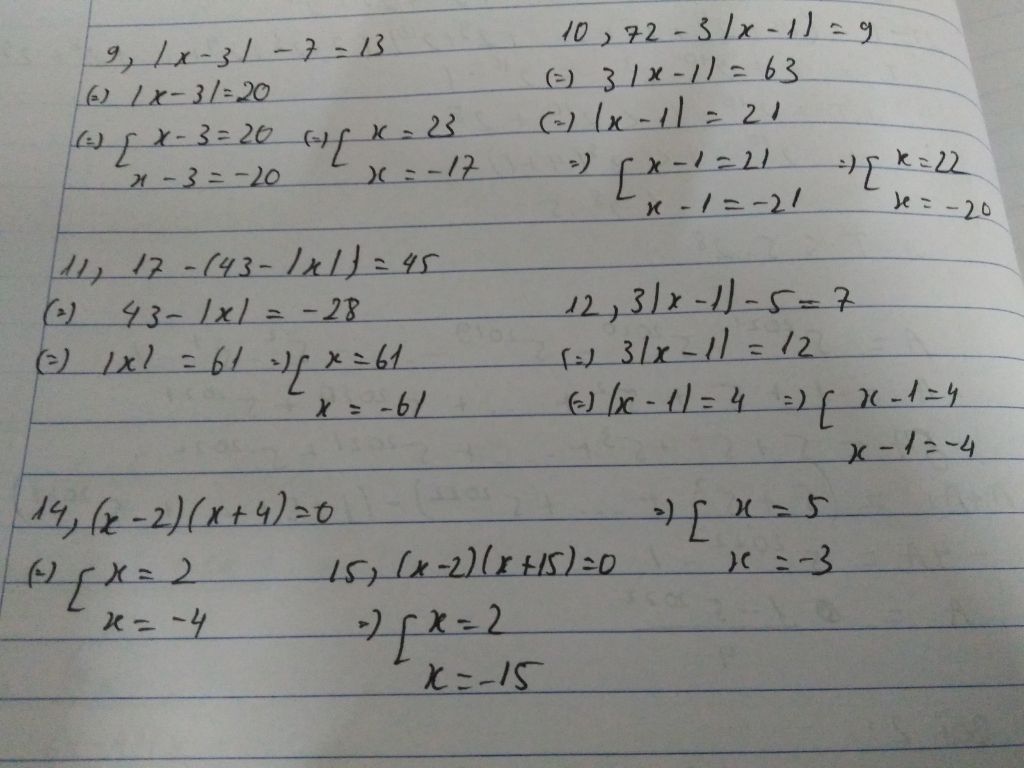 9, |x-3| - 7 = 13
(=) |x-3| = 20
(=) [ x-3 = 20 (=) [ x = 23
x-3 = -20 x = -17
10, 72 - 3|x-1| = 9
(=) 3|x-1| = 63
(=) |x-1| = 21
=) [ x-1 = 21 =) [ x = 22
x-1 = -21 x = -20
11, 17 - (43 - |x|) = 45
(=) 43 - |x| = -28
(=) |x| = 61 =) [ x = 61
x = -61
12, 3|x-1| - 5 = 7
(=) 3|x-1| = 12
(=) |x-1| = 4 =) [ x-1 = 4
x-1 = -4
=) [ x = 5
x = -3
14, (x-2)(x+4) = 0
(=) [ x = 2
x = -4
15, (x-2)(x+15) = 0
=) [ x = 2
x = -15